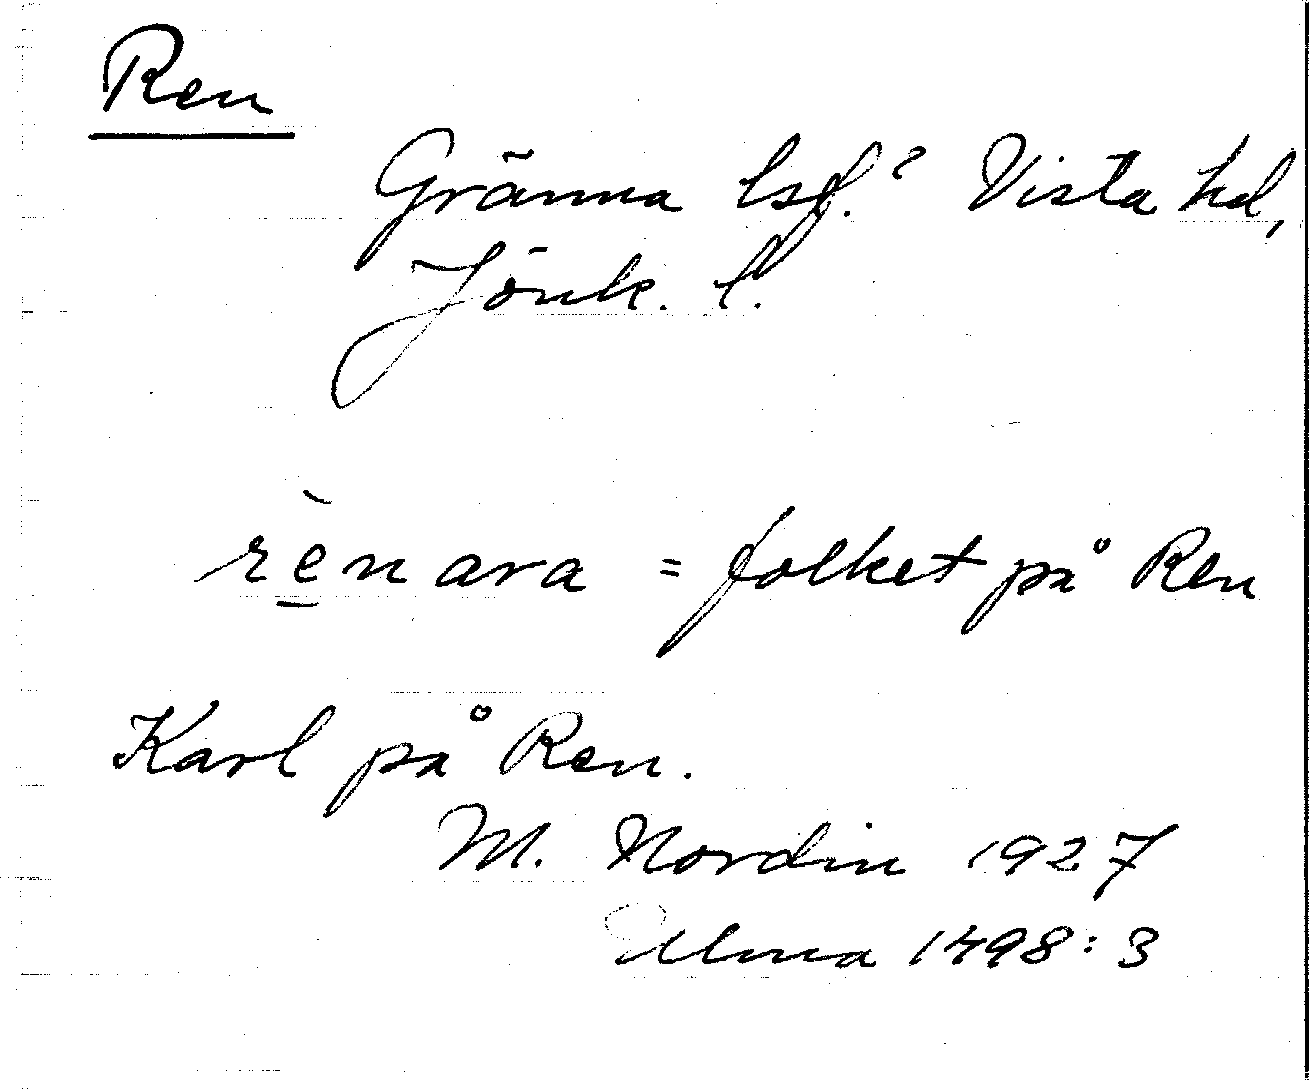 Ren
Gränna lsf.? Vista hd,
Jönk. l.
rènara = folket på Ren
Karl på Ren.
M. Nordin 1927
Ulma 1498:3